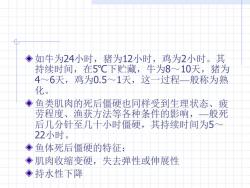 如牛为24小时，猪为12小时，鸡为2小时。其
持续时间，在5℃下贮藏，牛为8～10天，猪为
4～6天，鸡为0.5～1天，这一过程—般称为熟
化。
鱼类肌肉的死后僵硬也同样受到生理状态、疲
劳程度、渔获方法等各种条件的影响，—般死
后几分钟至几十小时僵硬，其持续时间为5～
22小时。
鱼体死后僵硬的特征：
肌肉收缩变硬，失去弹性或伸展性
持水性下降